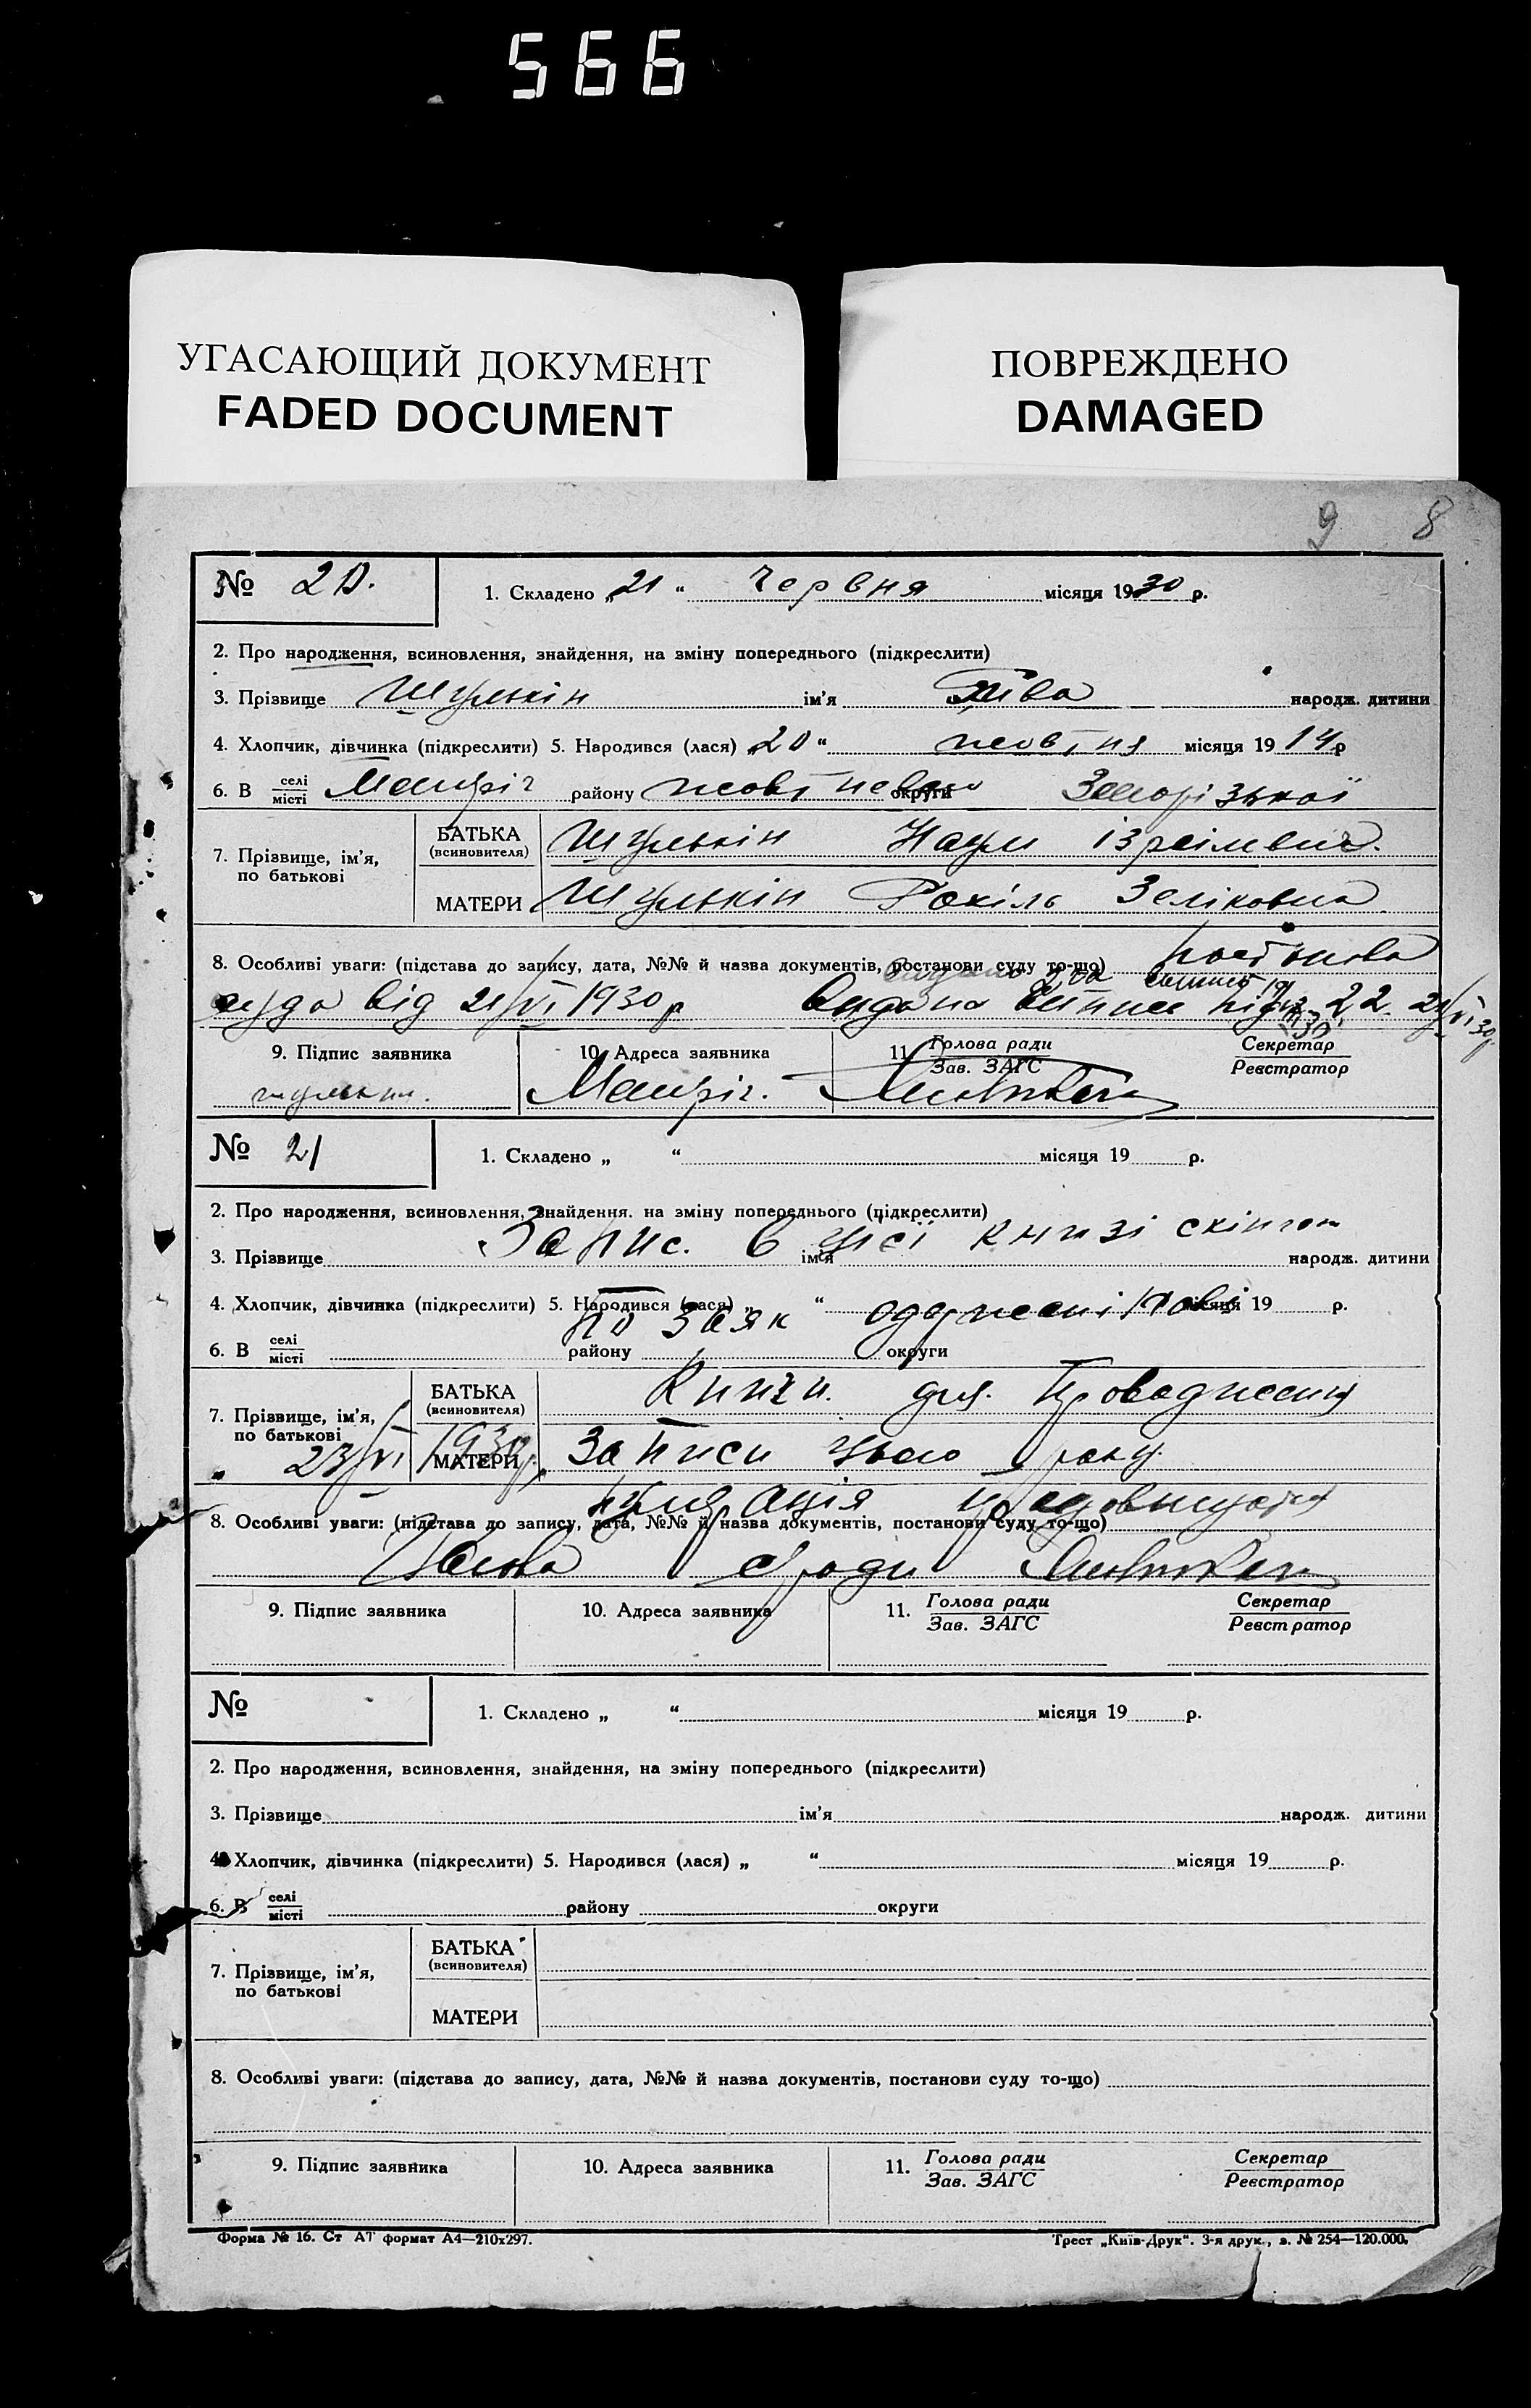 566
УГАСАЮЩИЙ ДОКУМЕНТ
FADED DOCUMENT
ПОВРЕЖДЕНО
DAMAGED
9 8
№ 20.
1. Складено „21 “ Червня місяця 1930 р.
2. Про народження, всиновлення, знайдення, на зміну попереднього (підкреслити)
3. Прізвище Шулькін ім'я народж. дитини
4. Хлопчик, дівчинка (підкреслити) 5. Народився (лася) „20“ жовтня місяця 1914 р
6. В селі місті район у жовтневого округи
7. Прізвище, ім'я, по батькові
БАТЬКА (всиновителя) Шулькін Наум
МАТЕРИ Шулькін Рохіль Зеліковна
8. Особливі уваги: (підстава до запису, дата, №№ й назва документів, постанови суду то-що)
суда від 21/VI 1930 р 22. 21/VI 30р.
9. Підпис заявника
10. Адреса заявника
11. Голова ради Зав. ЗАГС
Секретар Реєстратор
№ 21
1. Складено „ “ місяця 19 р.
2. Про народження, всиновлення, знайдення. на зміну попереднього (підкреслити)
Запис. в цієї книзі
3. Прізвище ім'я народж. дитини
4. Хлопчик, дівчинка (підкреслити) 5. Народився (лася) „ “ місяця 19 р.
6. В селі місті району округи
7. Прізвище, ім'я, по батькові
БАТЬКА (всиновителя) Книги. для.
23/VI 1930р. МАТЕРИ Записи цього року.
8. Особливі уваги: (підстава до запису, дата, №№ й назва документів, постанови суду то-що)
Голова с/ради
9. Підпис заявника
10. Адреса заявника
11. Голова ради Зав. ЗАГС
Секретар Реєстратор
№
1. Складено „ “ місяця 19 р.
2. Про народження, всиновлення, знайдення, на зміну попереднього (підкреслити)
3. Прізвище ім'я народж. дитини
4. Хлопчик, дівчинка (підкреслити) 5. Народився (лася) „ “ місяця 19 р.
6. В селі місті району округи
7. Прізвище, ім'я, по батькові
БАТЬКА (всиновителя)
МАТЕРИ
8. Особливі уваги: (підстава до запису, дата, №№ й назва документів, постанови суду то-що)
9. Підпис заявника
10. Адреса заявника
11. Голова ради Зав. ЗАГС
Секретар Реєстратор
Форма № 16. Ст АТ формат А4—210х297.
Трест „Київ-Друк“. 3-я друк., з. № 254—120.000.